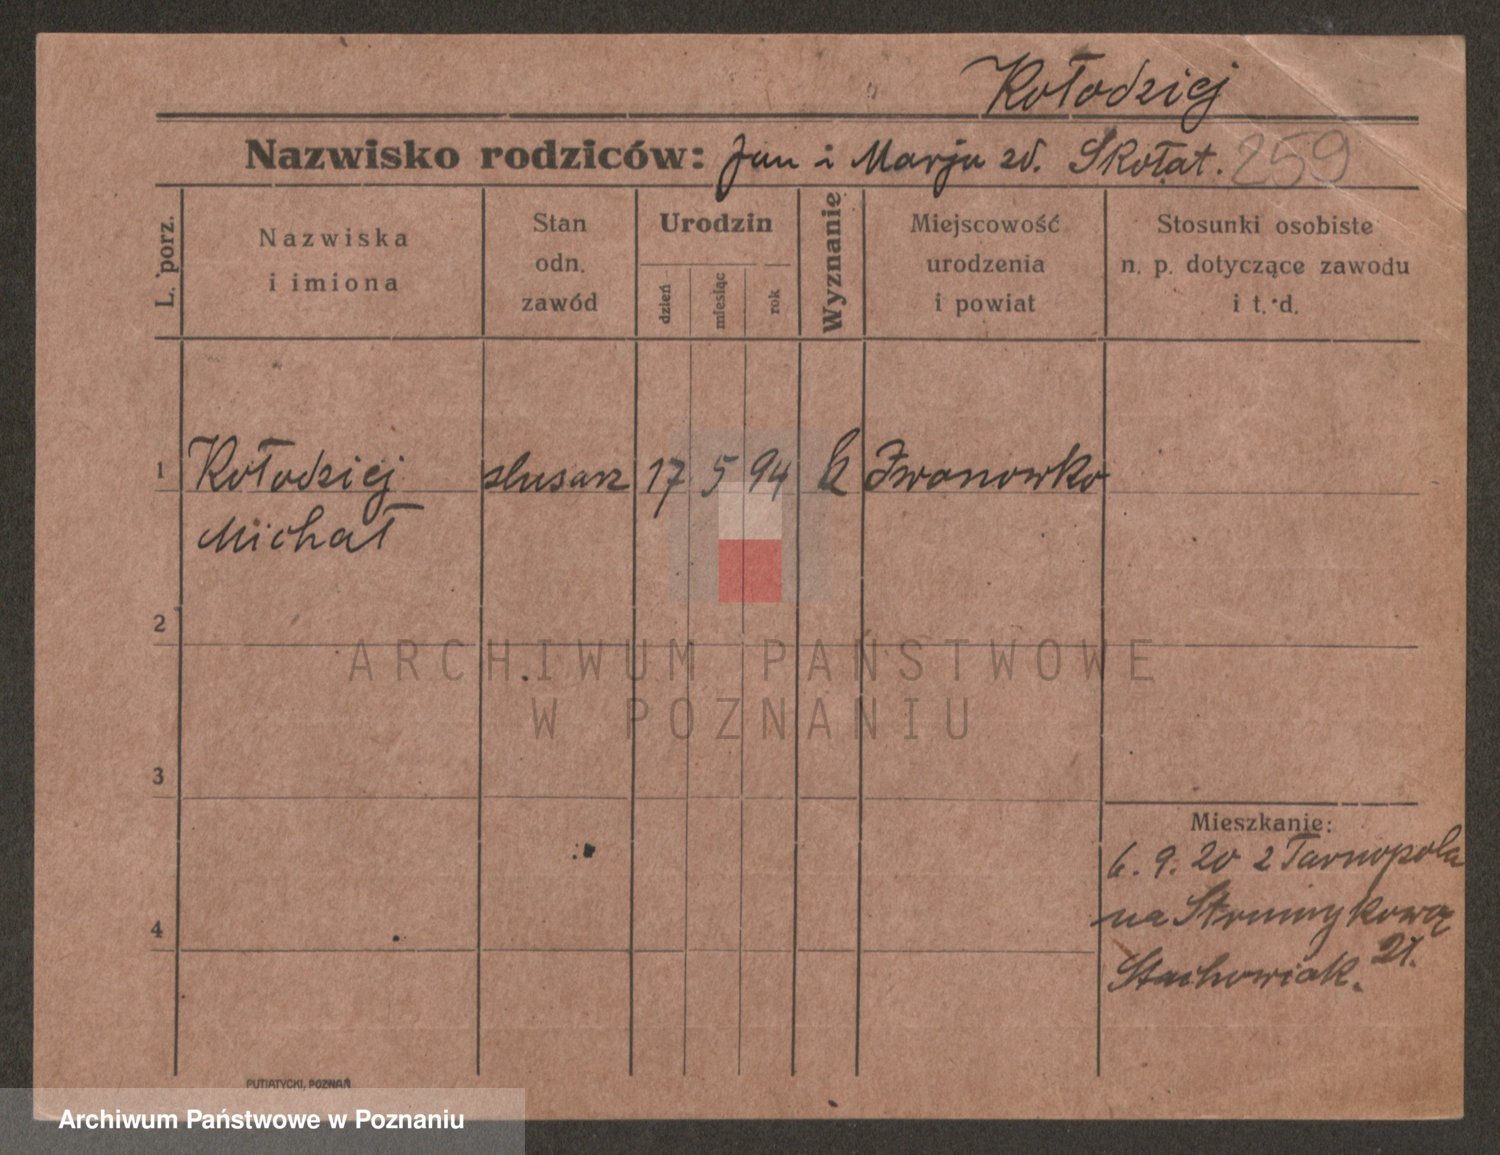 Kołodziej
Nazwisko rodziców: Jan i Marja zd. Skołat. 259
L. porz.
Nazwiska
i imiona
Stan
odn.
zawód
Urodzin
dzień
miesiąc
rok
Wyznanie
Miejscowość
urodzenia
i powiat
Stosunki osobiste
n. p. dotyczące zawodu
i t. d.
1 Kołodziej ślusarz 17 5 94 k Iwanowko
Michał
2
ARCHIWUM PAŃSTWOWE
W POZNANIU
3
Mieszkanie:
6. 9. 20 z Tarnopola
na Strumykową
21.
Stachowiak.
4
PUTIATYCKI, POZNAŃ
Archiwum Państwowe w Poznaniu